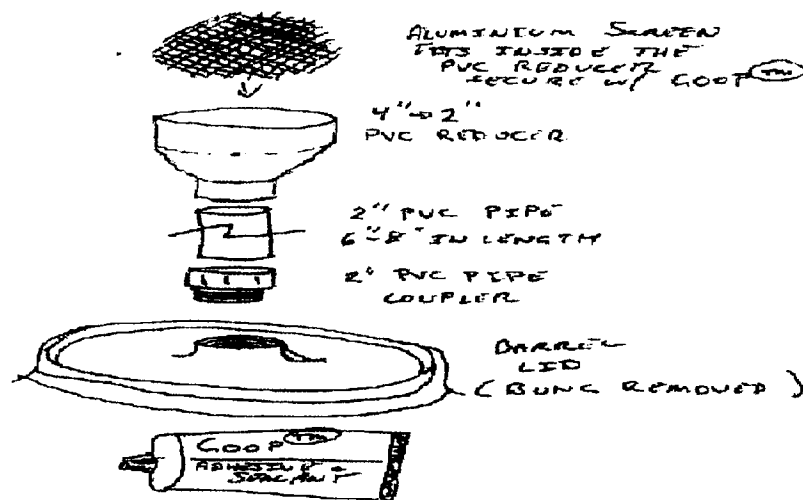 ALUMINIUM SCREEN
FITS INSIDE THE
PVC REDUCER
SECURE W/ GOOP TM
4"→2"
PVC REDUCER
2" PVC PIPE
6"-8" IN LENGTH
2" PVC PIPE
COUPLER
BARREL
LID
(BUNG REMOVED)
GOOP TM
ADHESIVE &
SEALANT